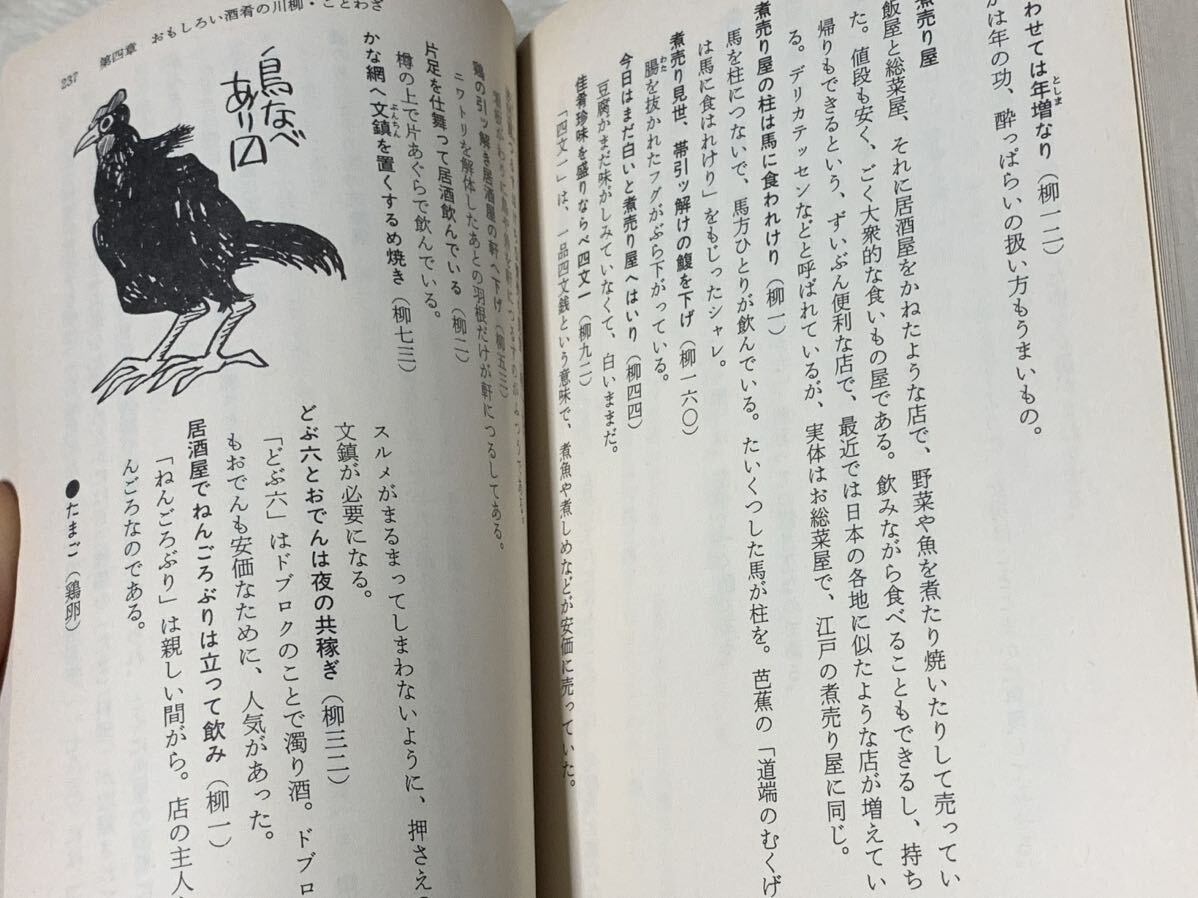 わせては年増なり（柳一二）
としま
は年の功、酔っぱらいの扱い方もうまいもの。
煮売り屋
飯屋と総菜屋、それに居酒屋をかねたような店で、野菜や魚を煮たり焼いたりして売ってい
た。値段も安く、ごく大衆的な食いもの屋である。飲みながら食べることもできるし、持ち
帰りもできるという、ずいぶん便利な店で、最近では日本の各地に似たような店が増えてい
る。デリカテッセンなどと呼ばれているが、実体はお総菜屋で、江戸の煮売り屋に同じ。
煮売り屋の柱は馬に食われけり（柳一）
馬を柱につないで、馬方ひとりが飲んでいる。たいくつした馬が柱を。芭蕉の「道端のむくげ
は馬に食はれけり」をもじったシャレ。
煮売り見世、帯引ッ解けの鰒を下げ（柳一六〇）
腸を抜かれたフグがぶら下がっている。
わた
今日はまだ白いと煮売り屋へはいり（柳四四）
豆腐がまだ味がしみていなくて、白いままだ。
佳肴珍味を盛りならべ四文一（柳九二）
「四文一」は、一品四文銭という意味で、煮魚や煮しめなどが安価に売っていた。
鶏の引ッ解き居酒屋の軒へ下げ（柳五三）
ニワトリを解体したあとの羽根だけが軒につるしてある。
片足を仕舞って居酒飲んでいる（柳二）
樽の上で片あぐらで飲んでいる。
かな網へ文鎮を置くするめ焼き（柳七三）
ぶんちん
スルメがまるまってしまわないように、押さえの
文鎮が必要になる。
どぶ六とおでんは夜の共稼ぎ（柳三二）
「どぶ六」はドブロクのことで濁り酒。ドブロ
もおでんも安価なために、人気があった。
居酒屋でねんごろぶりは立って飲み（柳一）
「ねんごろぶり」は親しい間がら。店の主人
んごろなのである。
●たまご（鶏卵）
鳥なべ
あり〼
237　第四章　おもしろい酒肴の川柳・ことわざ